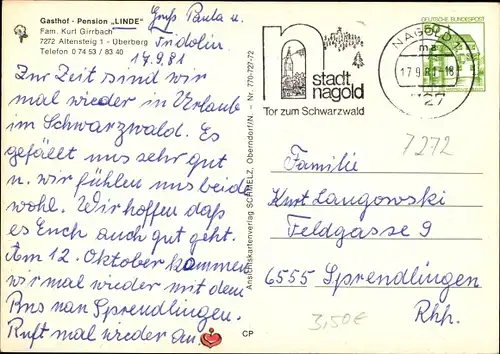 Gasthof - Pension „LINDE“
Fam. Kurt Girrbach
7272 Altensteig 1 - Überberg
Telefon 0 74 53 / 83 40
Gruß Paula u.
Fridolin
17.9.81
Zur Zeit sind wir
mal wieder in Urlaube
im Schwarzwald. Es
gefällt uns sehr gut
u. wir fühlen uns beid
wohl. Wir hoffen daß
es Euch auch gut geht.
Am 12. Oktober kommen
wir mal wieder mit dem
Bus nan Sprendlingen.
Ruft mal wieder an
CP
Ansichtskartenverlag SCHMELZ, Oberndorf/N. - Nr. 770-727-72
n stadt
nagold
Tor zum Schwarzwald
NAGOLD 1
ma
17.9.81-18
727
DEUTSCHE BUNDESPOST
7272
Familie
Kurt Langowski
Feldgasse 9
6555 Sprendlingen
Rhh.
3,50€